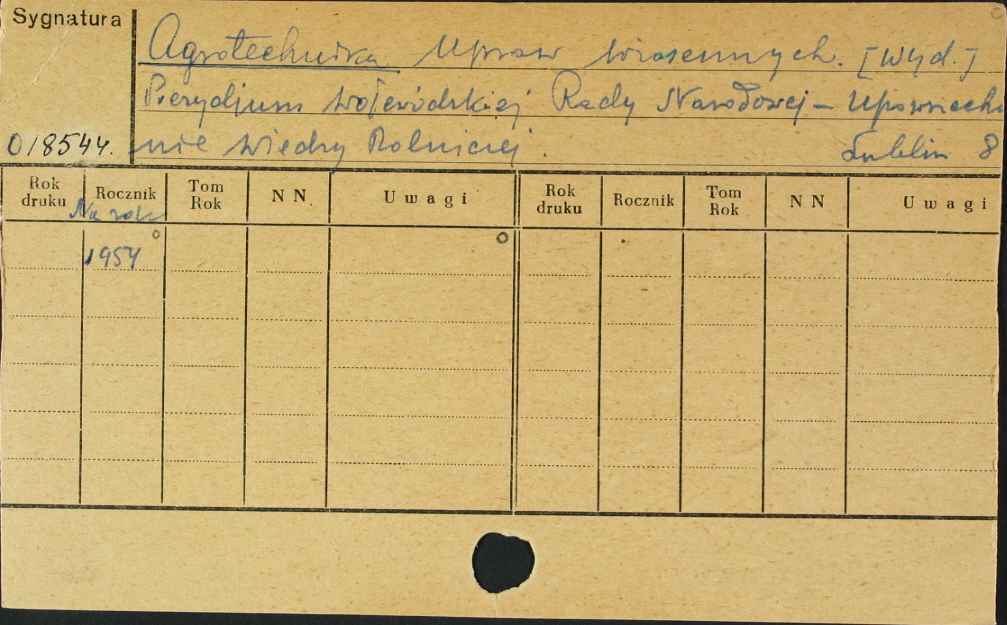 Sygnatura
Agrotechnika Upraw wiosennych. [Wyd.]
Prezydjum Wojewódzkiej Rady Narodowej - Upowszech
018544. nie Wiedzy Rolniczej. Lublin 8
Rok druku Rocznik Tom Rok N N. Uwagi Rok druku Rocznik Tom Rok N N Uwagi
Na rok
1954